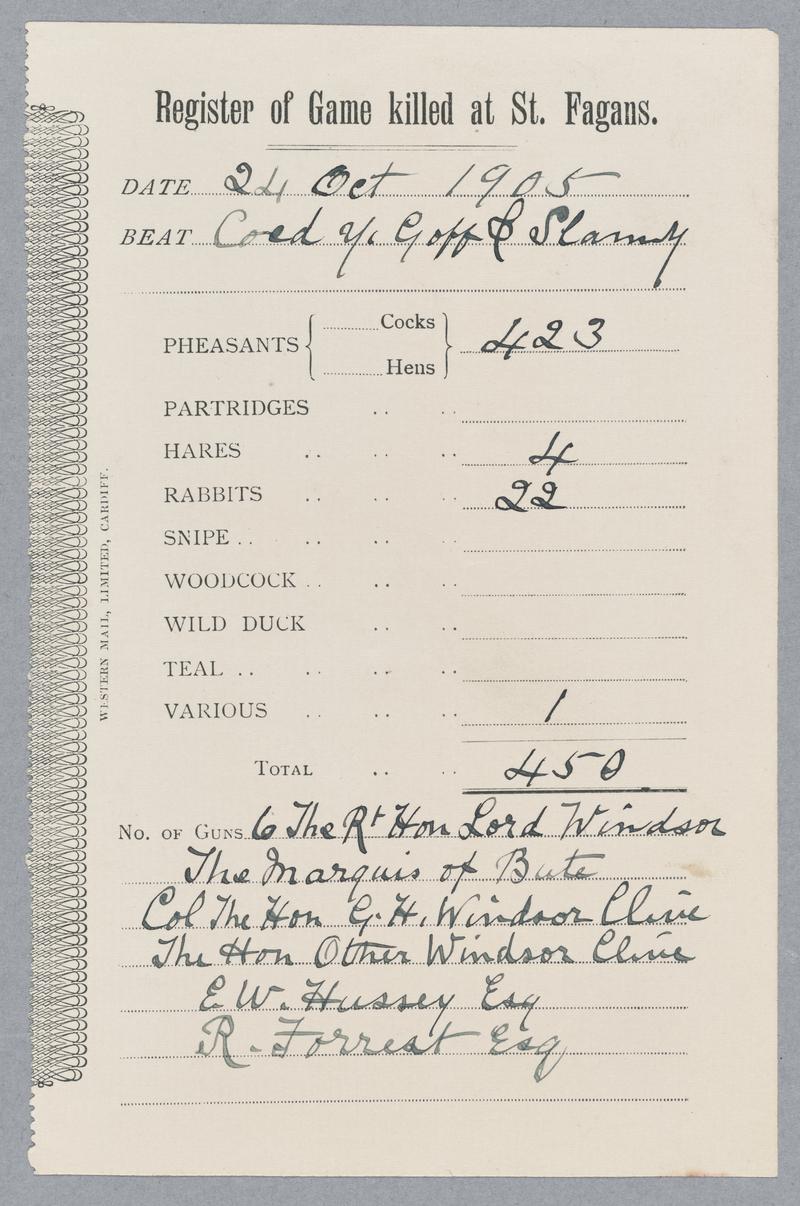 Register of Game killed at St. Fagans.
DATE 24 Oct 1905
BEAT Coed y Goff & Slanney
PHEASANTS Cocks Hens 423
PARTRIDGES
HARES 4
RABBITS 22
SNIPE
WOODCOCK
WILD DUCK
TEAL
VARIOUS 1
TOTAL 450
No. of Guns 6 The Rt Hon Lord Windsor
The Marquis of Bute
Col The Hon G. H. Windsor Clive
The Hon Other Windsor Clive
E. W. Hussey Esq
R. Forrest Esq
WESTERN MAIL, LIMITED, CARDIFF.